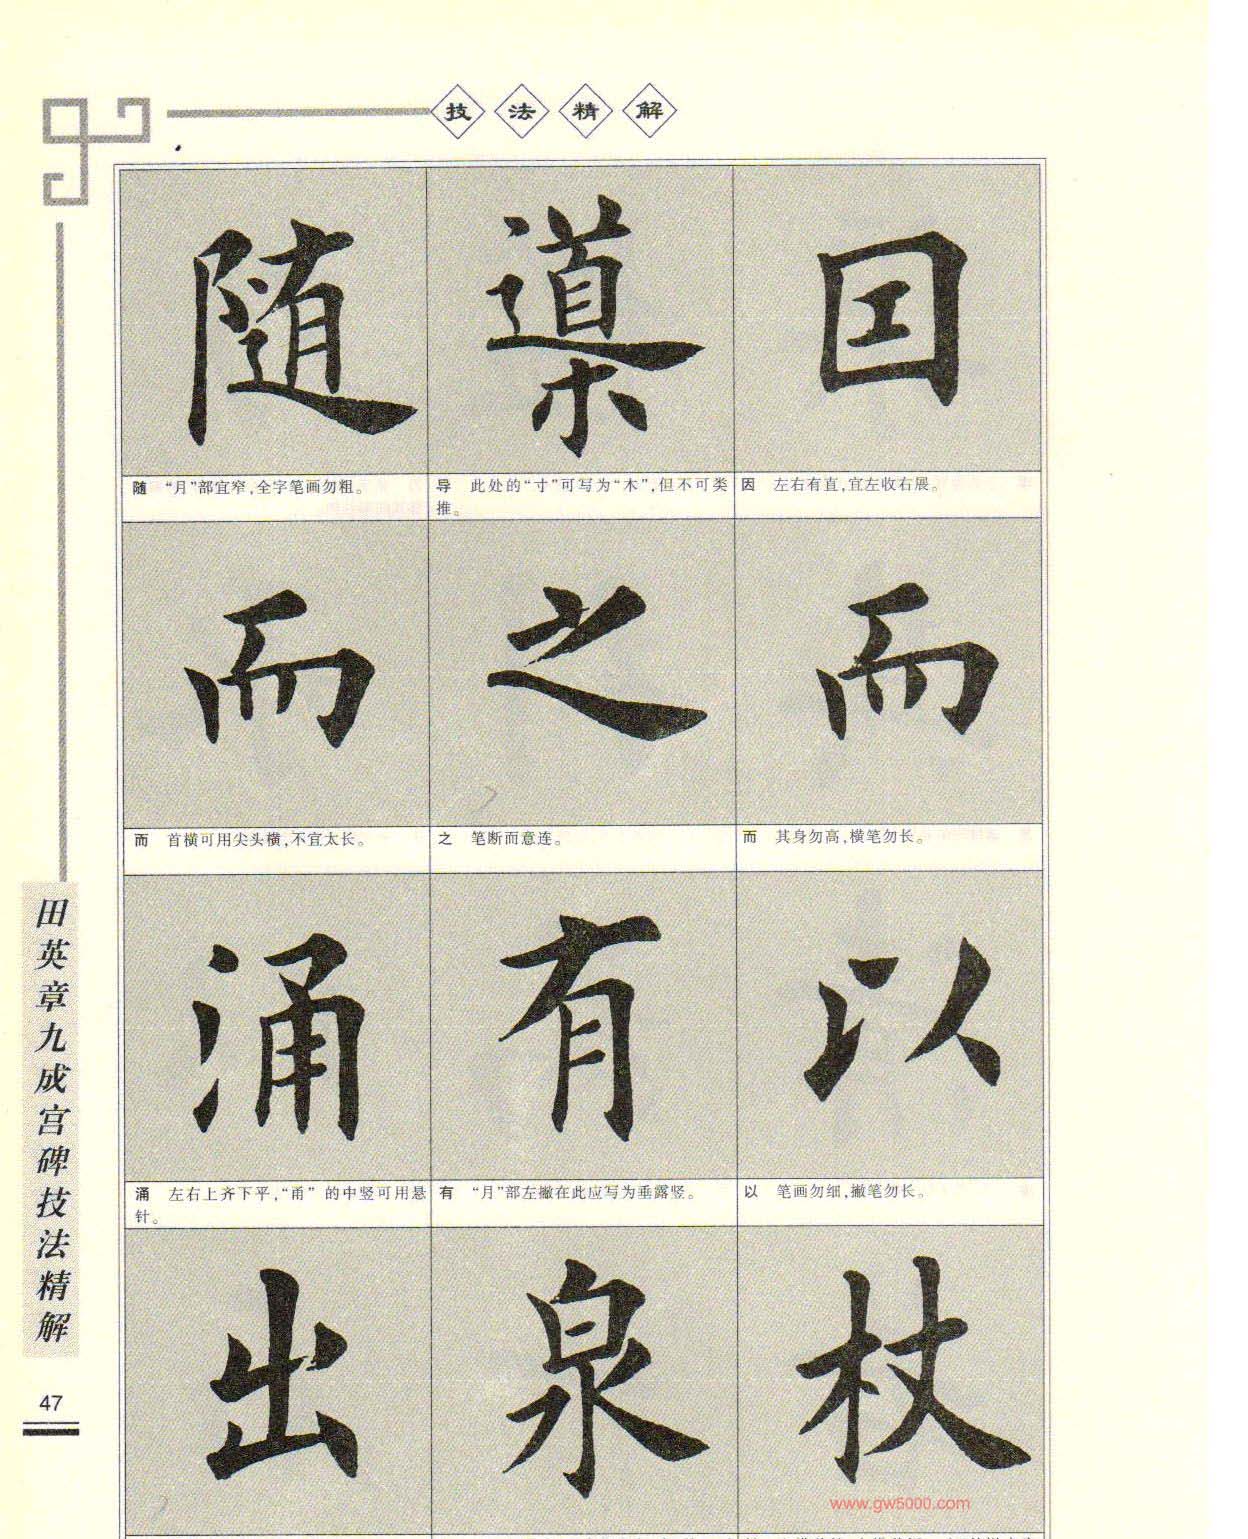 技法精解
随 導 因
随 “月”部宜窄,全字笔画勿粗。
导 此处的“寸”可写为“木”,但不可类
推。
因 左右有直,宜左收右展。
而 之 而
而 首横可用尖头横,不宜太长。
之 笔断而意连。
而 其身勿高,横笔勿长。
涌 有 以
涌 左右上齐下平,“甬”的中竖可用悬
针。
有 “月”部左撇在此应写为垂露竖。
以 笔画勿细,撇笔勿长。
出 泉 杖
田英章九成宫碑技法精解
47
www.gw5000.com